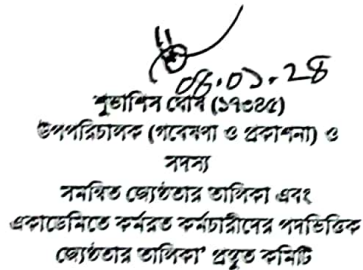 ০৪.০১.২৪
শুভাশিস ঘোষ (১৭৩৪৫)
উপপরিচালক (গবেষণা ও প্রকাশনা) ও
সদস্য
সমন্বিত জ্যেষ্ঠতার তালিকা এবং
একাডেমিতে কর্মরত কর্মচারীদের পদভিত্তিক
জ্যেষ্ঠতার তালিকা’ প্রস্তুত কমিটি